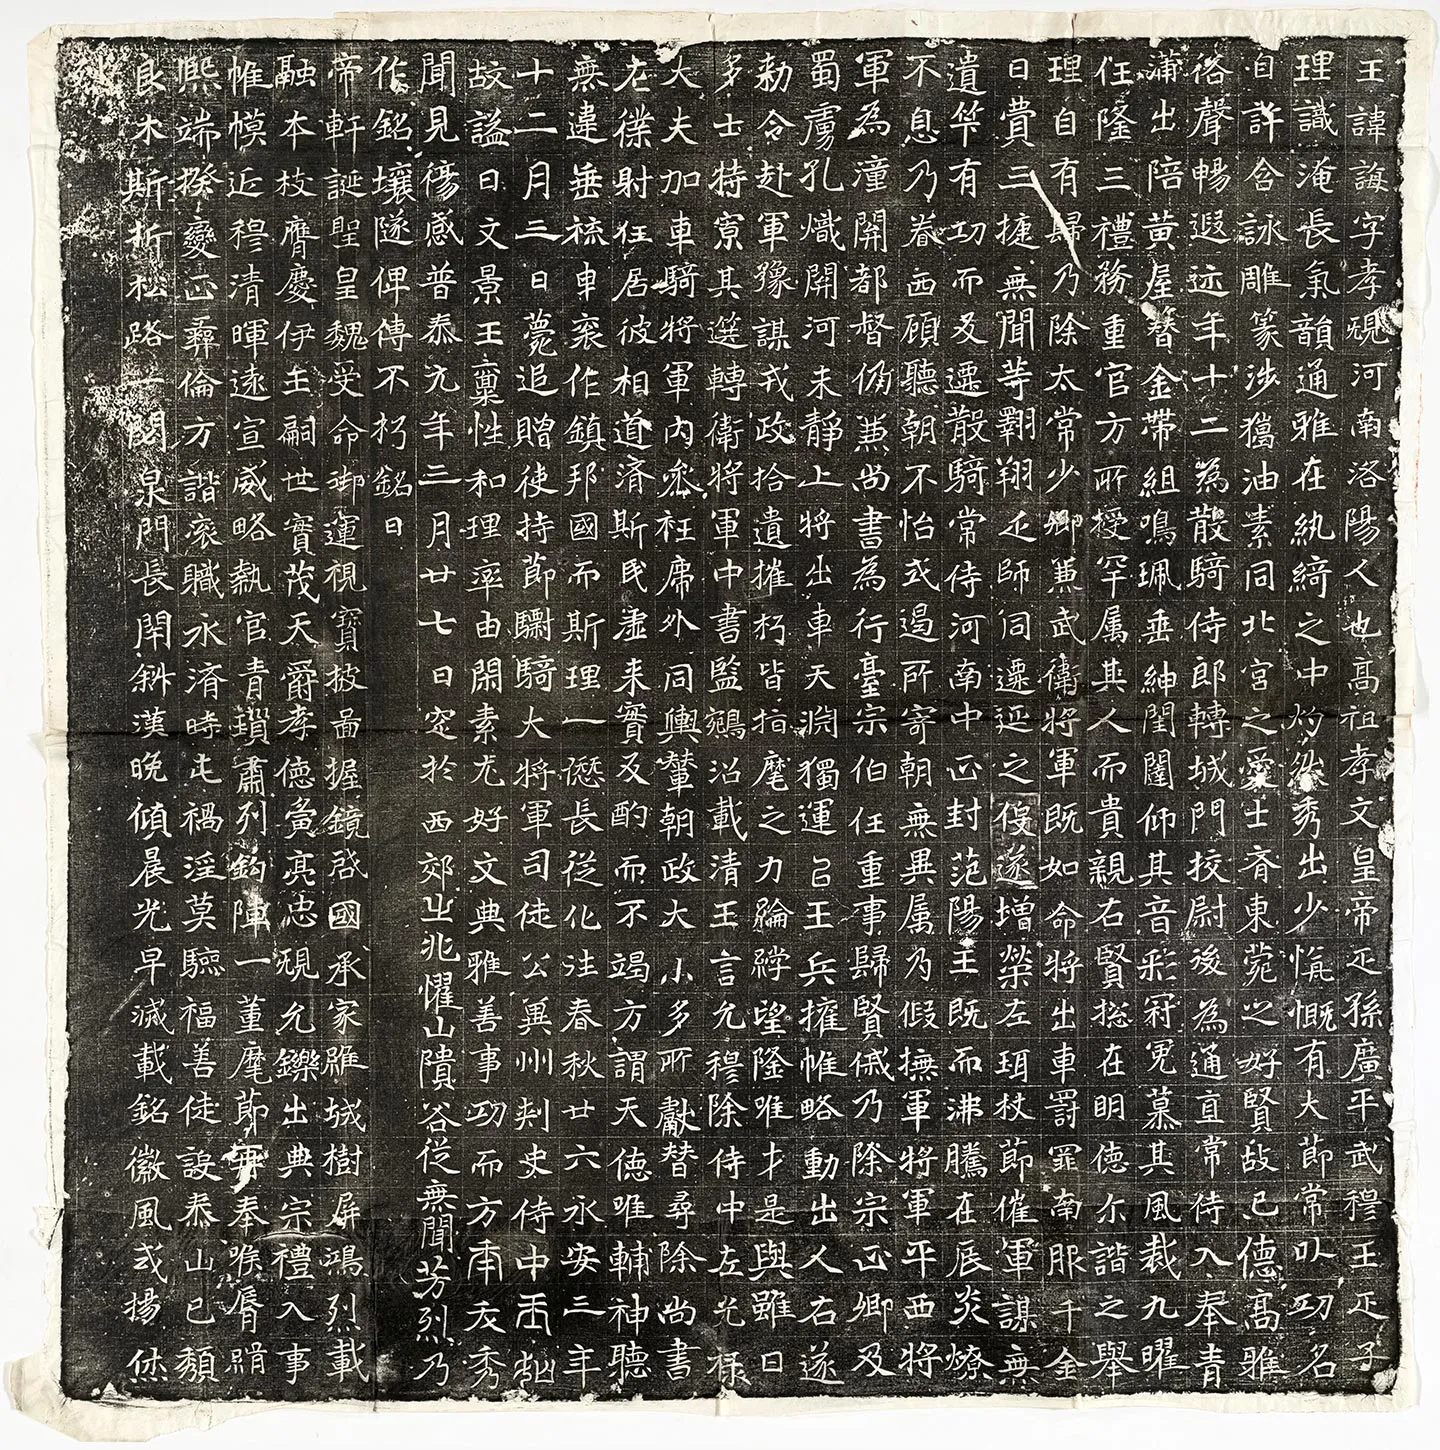 王諱誨字孝規河南洛陽人也高祖孝文皇帝之孫廣平武穆王之子
理識淹長氣韻通雅在紈綺之中灼然秀出少慷慨有大節常以功名
自許含詠雕篆涉獵油素同北宮之愛士齊東菀之好賢故已德高雅
俗聲暢遐迩年十二為散騎侍郎轉城門挍尉後為通直常侍入奉青
蒲出陪黃屋替金帶組鳴珮垂紳閨闥仰其音彩冠冕慕其風裁九曜
任隆三禮務重官方所授罕属其人而貴親右賢揔在明德尒諧之舉
理自有歸乃除太常少卿兼武衛將軍既如命將出車罸罪南服千金
日費三捷無聞等翺翔之師同遷延之役遂增榮左珥杖莭催軍謀無
遺筭有功而反遷散騎常侍河南中正封范陽王既而沸騰在辰炎燎
不息乃眷西顧聽朝不怡式遏所寄朝無異属乃假撫軍將軍平西將
軍為潼關都督仍兼尚書為行臺宗伯任重事歸賢戚乃除宗正卿及
蜀虜孔熾關河未靜上將出車天淵獨運以王兵擁帷略動出人右遂
勑令赴軍豫謀戎政拾遺摧朽皆指麾之力綸綍望隆唯才是與雖曰
多士特寮其選轉衛將軍中書監鵷沼載清王言允穆除侍中左光祿
大夫加車騎將軍內參衽席外同輿輦朝政大小多所獻替尋除尚書
左僕射狂居彼相道濟斯民虛来實反酌而不竭方謂天德唯輔神聽
無違垂旒申衮作鎮邦國而斯理一愆長從化注春秋廿六永安三年
十二月三日薨追贈使持莭驃騎大將軍司徒公兾州刾史侍中王如
故謚曰文景王稟性和理率由閑素尤好文典雅善事功而方申友秀
聞見傷感普泰元年三月廿七日窆於西郊之兆懼山隤谷從無聞芳烈乃
作銘壤隧俾傳不朽銘曰
帝軒誕聖皇魏受命御運視寶披啚握鏡啓國承家維城樹屏鴻烈載
融本枝膺慶伊王嗣世實茂天爵孝德為亮忠規允鑠出典宗禮入事
帷幙近穆清暉遠宣威略執官青瑣肅列鈎陣一董麾莭再奉喉脣緝
熙端揆變正彝倫方諧衮職永濟時屯禍淫莫驗福善徒設泰山已頹
良木斯折松路一閟泉門長閇斜漢晚傾晨光早滅載銘徽風式揚烋